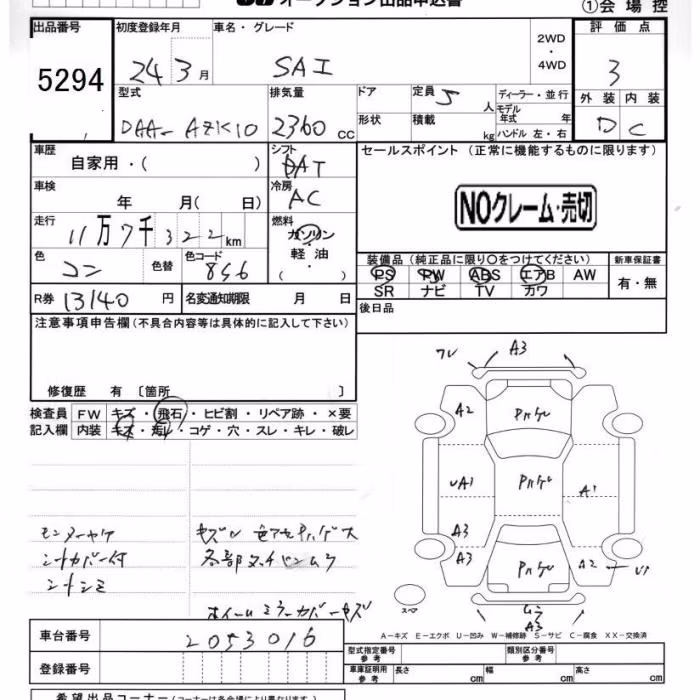 オークション出品申込書
①会場控
出品番号 初度登録年月 車名・グレード 評価点
5294
24 3月 SAI 2WD・4WD 3
型式 排気量 ドア 定員 5人 ディーラー・並行 外装 内装
モデル年式 年
DAA-AZK10 2360 cc 形状 積載 kg ハンドル 左・右 D C
車歴 シフト セールスポイント (正常に機能するものに限ります)
自家用・( ) AT
車検 冷房
年 月( 日) AC
NOクレーム・売切
走行 燃料
11万7千322km ガソリン・軽油・( )
色 色替 色コード 装備品(純正品に限り○をつけてください) 新車保証書
コン 8S6 PS PW ABS エアB AW 有・無
SR ナビ TV カワ
R券 13140円 名変通知期限 月 日 後日品
注意事項申告欄(不具合内容等は具体的に記入して下さい)
修復歴 有〔箇所 〕
検査員 FW キズ・飛石・ヒビ割・リペア跡・×要
記入欄 内装 キズ・汚レ・コゲ・穴・スレ・キレ・破レ
A3
A2 Pハゲ
A1 Pハゲ A1
A3
A3 Pハゲ A2
A3
モニターヤケ
シートカバー付
シートシミ
A-キズ E-エクボ U-凹み W-補修跡 S-サビ C-腐食 XX-交換済
車台番号 2053016
型式指定番号 参考 類別区分番号 参考
登録番号
車庫証明用 参考 長さ cm 幅 cm 高さ cm
希望出品コーナー